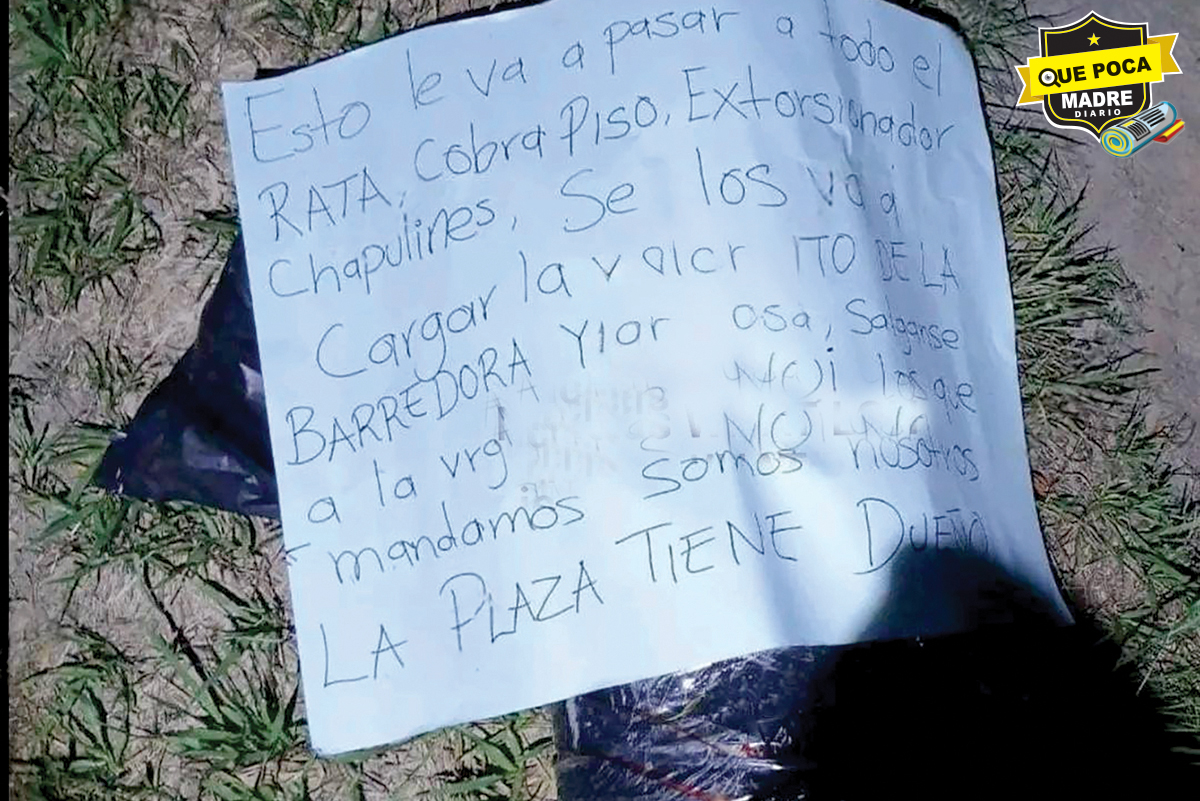 Esto le va a pasar a todo el
RATA, Cobra Piso, Extorsionador
Chapulines, Se los va a
Cargar la v ITO DE LA
BARREDORA Y osa, Salganse
a la vrg los que
mandamos somos nosotros
LA PLAZA TIENE DUEÑO
QUE POCA
MADRE
DIARIO